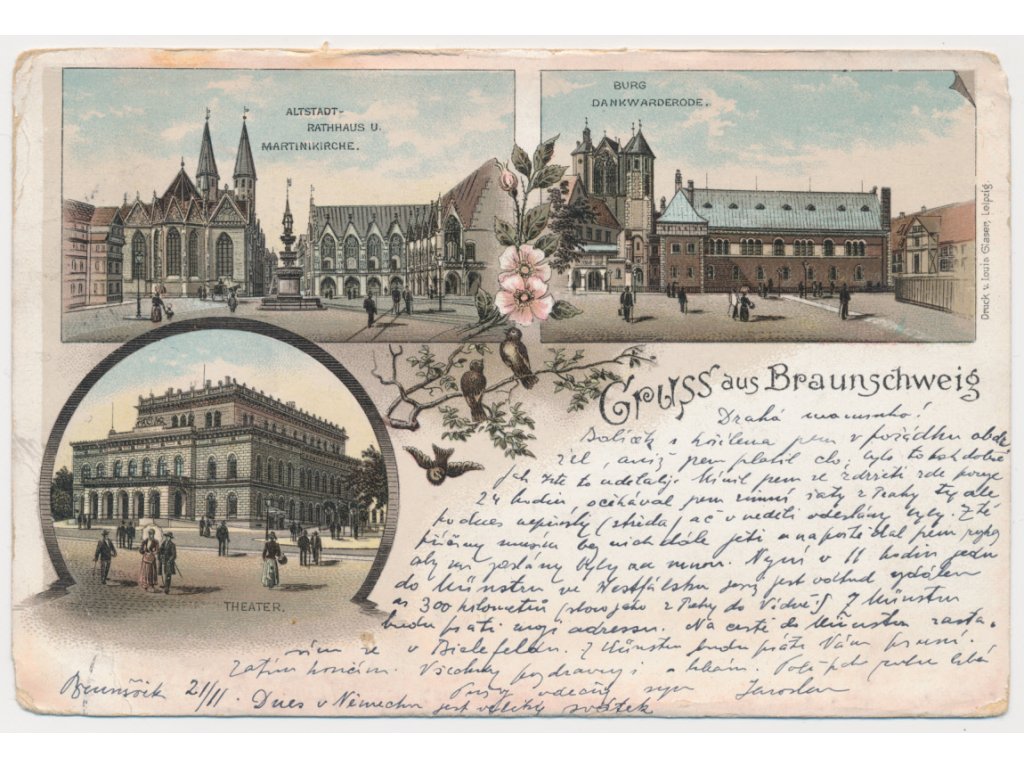 ALTSTADT-
RATHHAUS U.
MARTINIKIRCHE.
BURG
DANKWARDERODE.
Druck v. Louis Glaser, Leipzig.
THEATER.
Gruss aus Braunschweig
Drahá maminko!
Balíček s košilema jsem v pořádku obdr
žel, aniž jsem platil clo, bylo to tak dobré
jak jste to udělali. Mínil jsem se zdržeti zde pouze
24 hodin očekával jsem zimní šaty z Prahy ty ale
podnes nepřišly (středa) ač v neděli odeslány byly. Z té
příčiny musím bez nich dále jeti a na poště dal jsem
aby mi zaslány byly za mnou. Nyní v 11 hodin jedu
do Münstru ve Westfálsku jenž jest odtud vzdálen
as 300 kilometrů (skoro jako z Prahy do Vídně). Z Münstru
budu psáti moji adressu. Na cestě do Münstru zasta-
vím se v Bielefeldu. Z Münstru budu psáti Vám prvně.
Zatím končím. Všechny pozdravuji a líbám.
vděčný syn Jaroslav
Brunšvik 21/11. Dnes v Německu jest veliký svátek